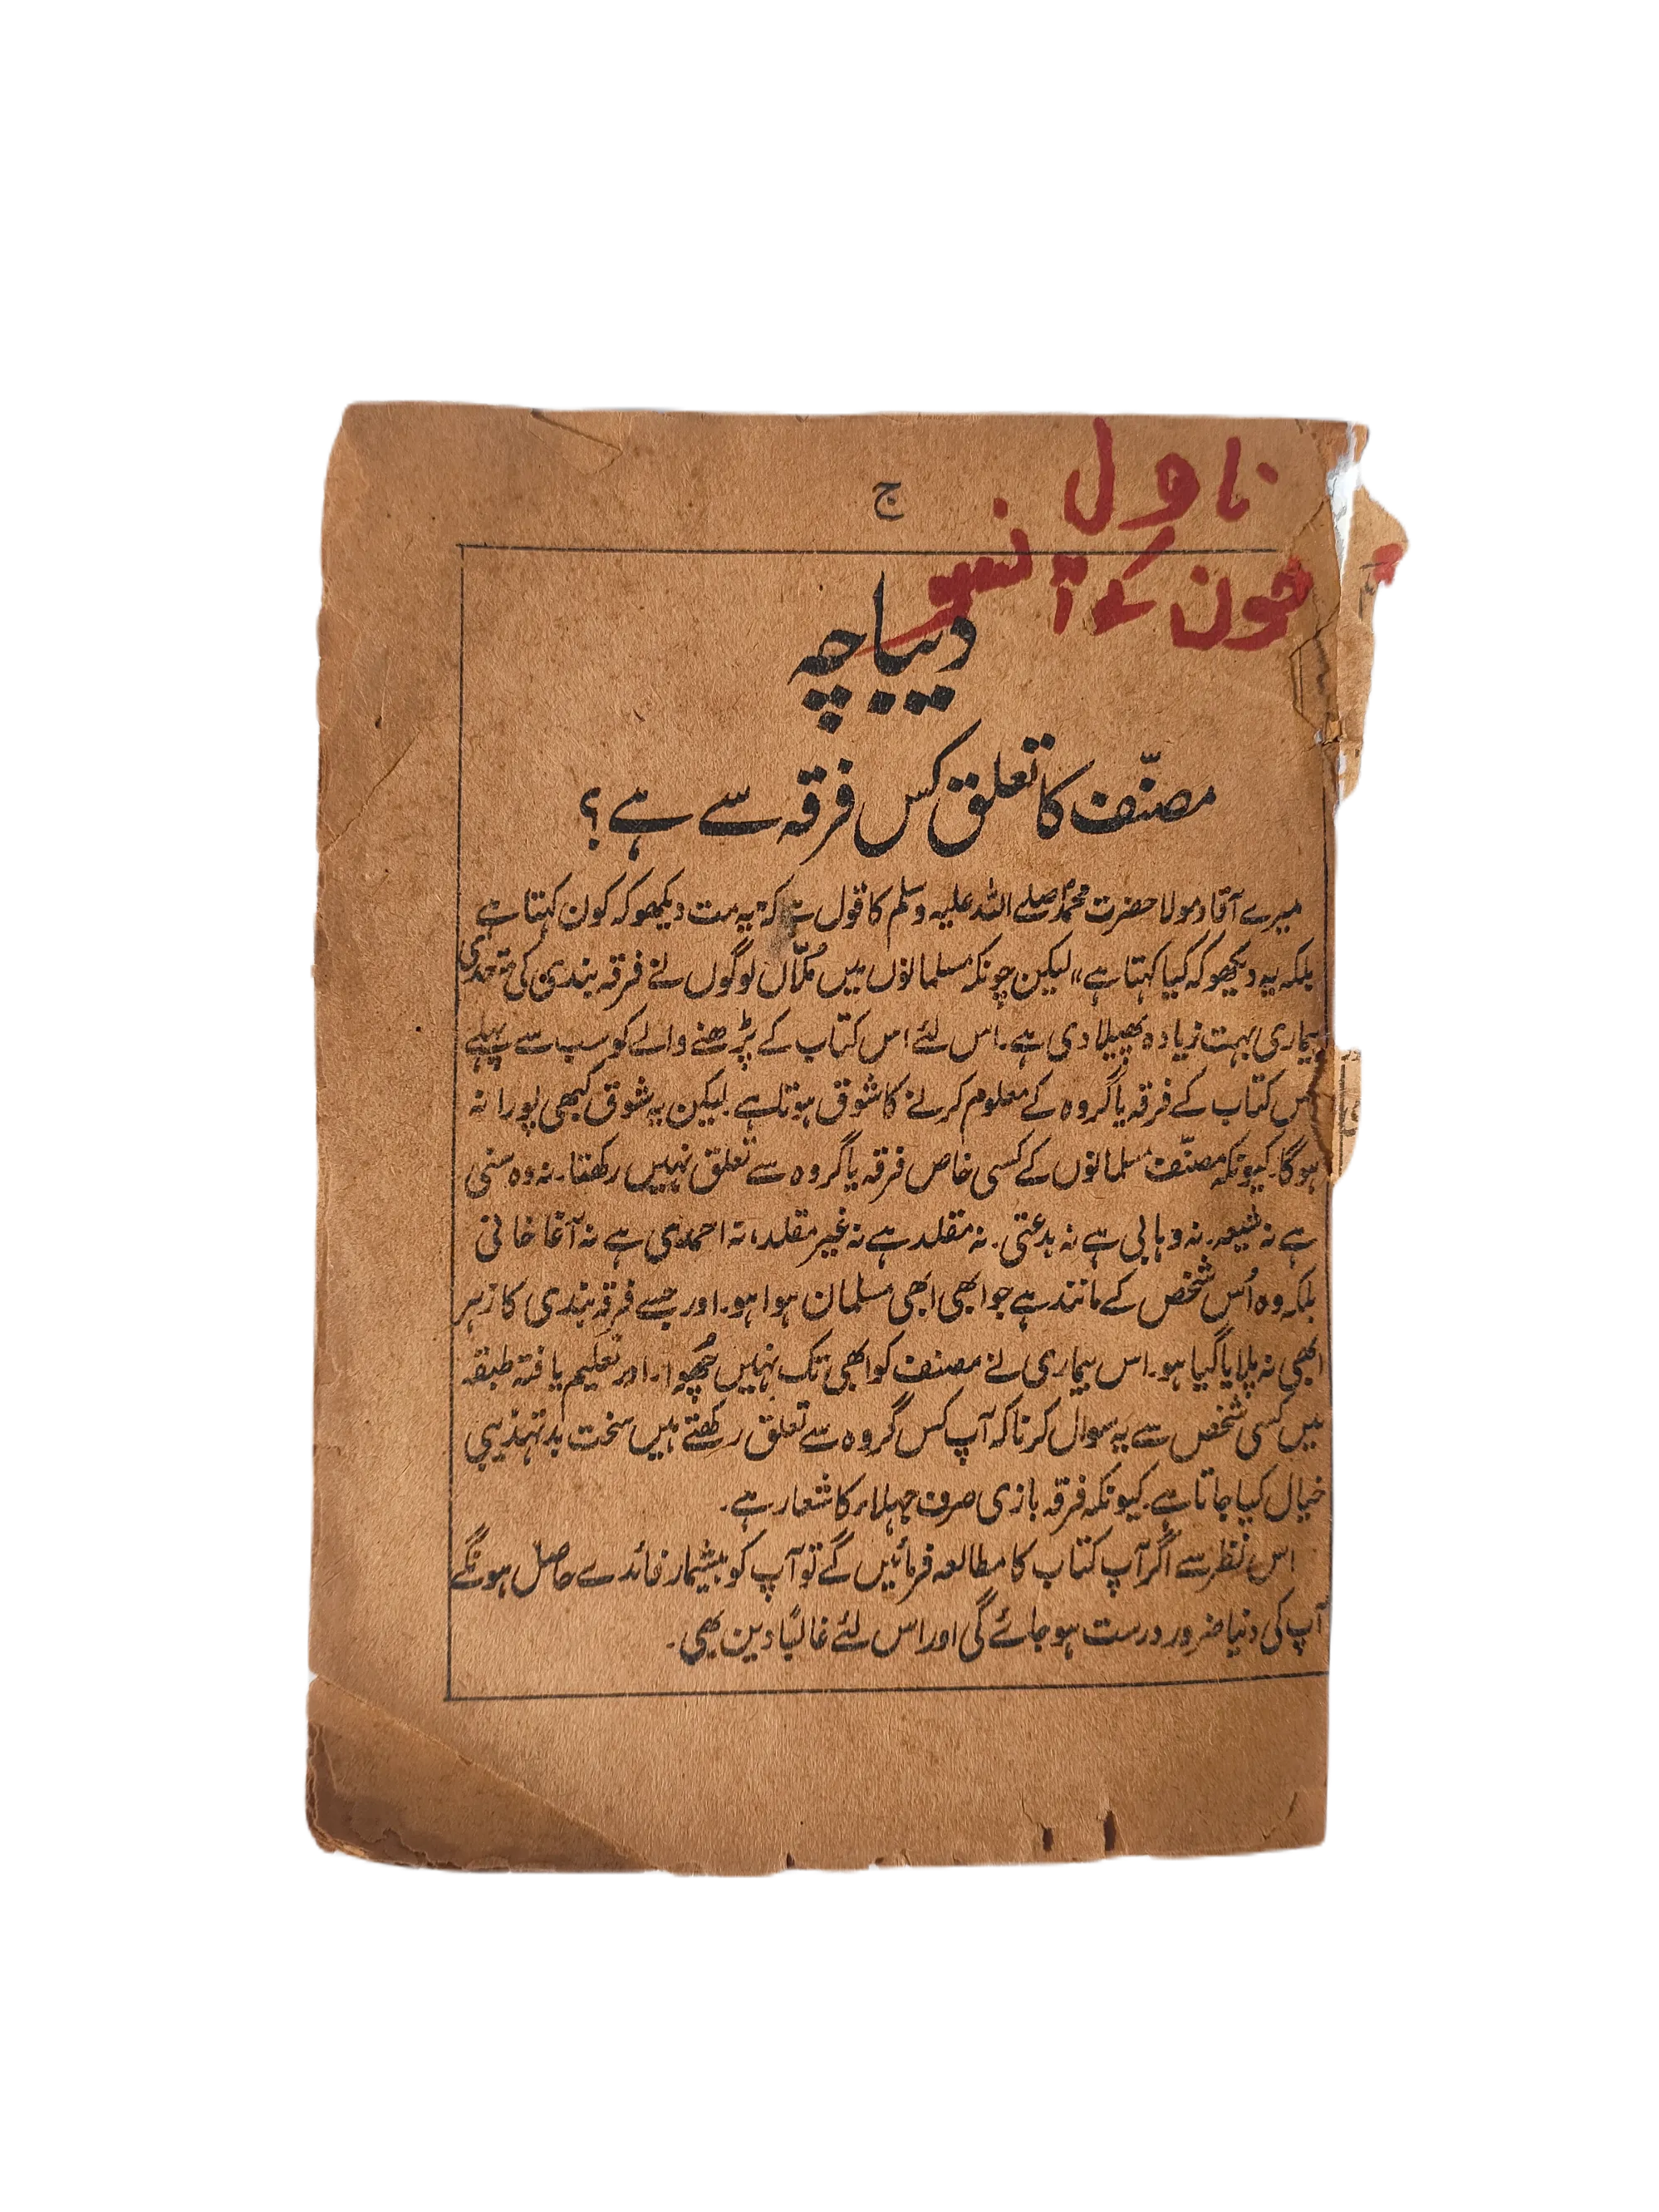 ناول
ج
خون کے آنسو
دیباچہ
مصنّف کا تعلق کس فرقہ سے ہے؟
میرے آقا و مولا حضرت محمدؐ صلے اللہ علیہ وسلم کا قول ہے کہ "یہ مت دیکھو کہ کون کہتا ہے
بلکہ یہ دیکھو کہ کیا کہتا ہے" لیکن چونکہ مسلمانوں میں لوگوں نے فرقہ بندی کی متعدی
بیماری بہت زیادہ پھیلا دی ہے۔ اس لئے اس کتاب کے پڑھنے والے کو سب سے پہلے
اس کتاب کے فرقہ یا گروہ کے معلوم کرنے کا شوق ہوتا ہے لیکن یہ شوق کبھی پورا نہ
ہوگا۔ کیونکہ مصنّف مسلمانوں کے کسی خاص فرقہ یا گروہ سے تعلق نہیں رکھتا۔ نہ وہ سنی
ہے نہ شیعہ۔ نہ وہابی ہے نہ بدعتی۔ نہ مقلد ہے نہ غیر مقلد، نہ احمدی ہے نہ آغا خانی
بلکہ وہ اُس شخص کے مانند ہے جو ابھی ابھی مسلمان ہوا ہو۔ اور جسے فرقہ بندی کا زہر
ابھی نہ پلایا گیا ہو۔ اس بیماری نے مصنف کو ابھی تک نہیں چُھوا۔ اور تعلیم یافتہ طبقہ
میں کسی شخص سے یہ سوال کرنا کہ آپ کس گروہ سے تعلق رکھتے ہیں سخت بدتہذیبی
خیال کیا جاتا ہے۔ کیونکہ فرقہ بازی صرف جہلاء کا شعار ہے۔
اس نظر سے اگر آپ کتاب کا مطالعہ فرمائیں گے تو آپ کو بیشمار فائدے حاصل ہونگے
آپ کی دنیا ضرور درست ہو جائے گی اور اس لئے غالبًا دین بھی۔